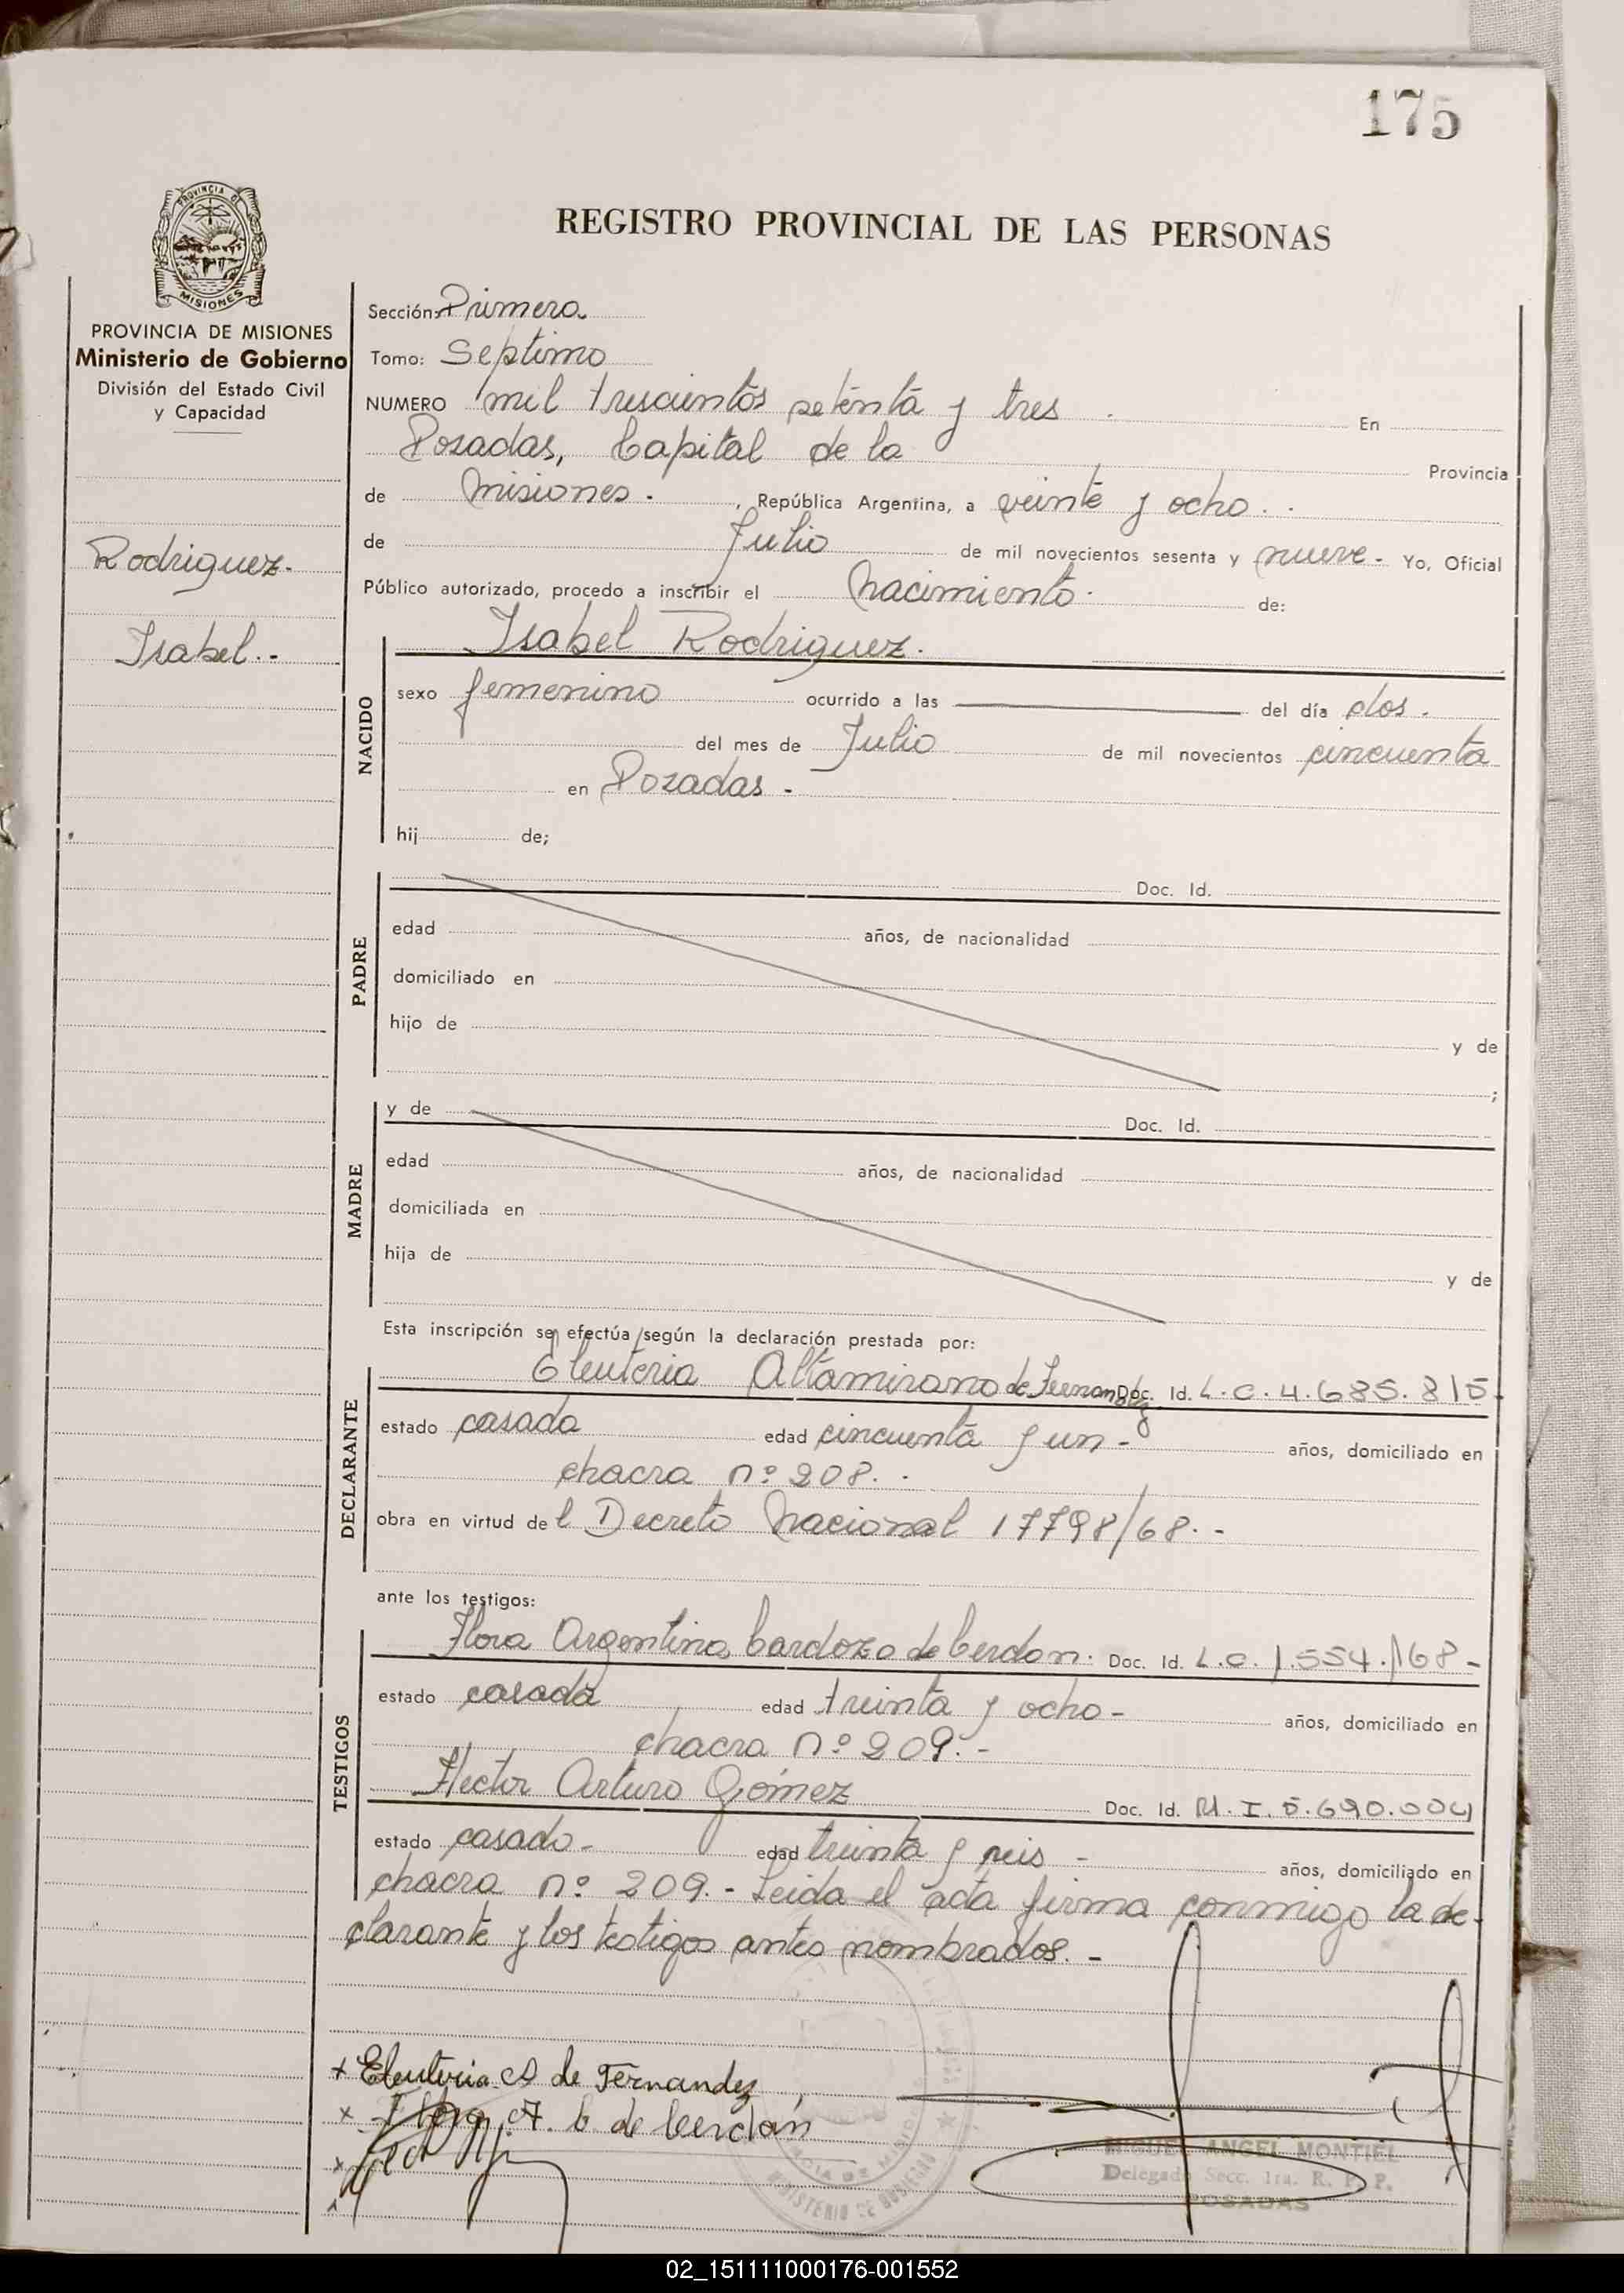 175
PROVINCIA DE
MISIONES
REGISTRO PROVINCIAL DE LAS PERSONAS
PROVINCIA DE MISIONES
Ministerio de Gobierno
División del Estado Civil
y Capacidad
Rodriguez.
Isabel.-
Sección: Primera.
Tomo: Septimo
NUMERO mil trescientos setenta y tres . En
Pozadas, Capital de la Provincia
de Misiones. , República Argentina, a veinte y ocho. .
de Julio de mil novecientos sesenta y nueve- Yo, Oficial
Público autorizado, procedo a inscribir el Nacimiento. de:
Isabel Rodriguez.
NACIDO
sexo femenino ocurrido a las del día dos.
del mes de Julio de mil novecientos cincuenta
en Pozadas -
hij de;
PADRE
Doc. Id.
edad años, de nacionalidad
domiciliado en
hijo de y de
;
MADRE
y de Doc. Id.
edad años, de nacionalidad
domiciliada en
hija de y de
Esta inscripción se efectúa según la declaración prestada por:
DECLARANTE
Eleuteria Altamirano de Fernandez Doc. Id. L.C.4.685.815-
estado casada edad cincuenta y un - años, domiciliado en
chacra nº 208. .
obra en virtud del Decreto Nacional 17798/68.-
ante los testigos:
TESTIGOS
Flora Argentina Cardozo de Cerdan. Doc. Id. L.C. 1.554.168-
estado casada edad treinta y ocho- años, domiciliado en
chacra nº 209.-
Hector Arturo Gómez Doc. Id. M.I.5.690.004
estado casado- edad treinta y seis - años, domiciliado en
chacra nº 209.- Leida el acta firma conmigo la de-
clarante y los testigos antes nombrados.-
x Eleuteria A de Fernandez
x Flora A. C. de Cerdán
x
MIGUEL ANGEL MONTIEL
Delegado Secc. 1ra. R. P. P.
POSADAS
MINISTERIO DE GOBIERNO
02_151111000176-001552